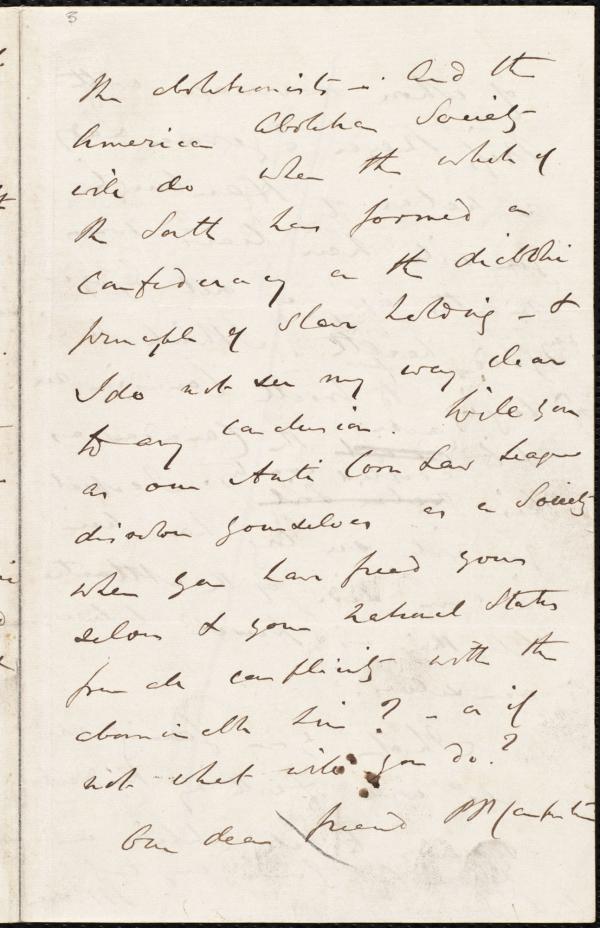 3
the abolitionists – and the
American Abolition Society
will do when the whole of
the South has formed a
Confederacy on the diabolic
principle of slave holding – &
I do not see my way clear
to any conclusion. Will you
as our Anti Corn Law League
dissolve yourselves as a Society
when you have freed your
selves & your National States
from all complicity with the
abominable sin? – or if
not what will you do?
Our dear friend